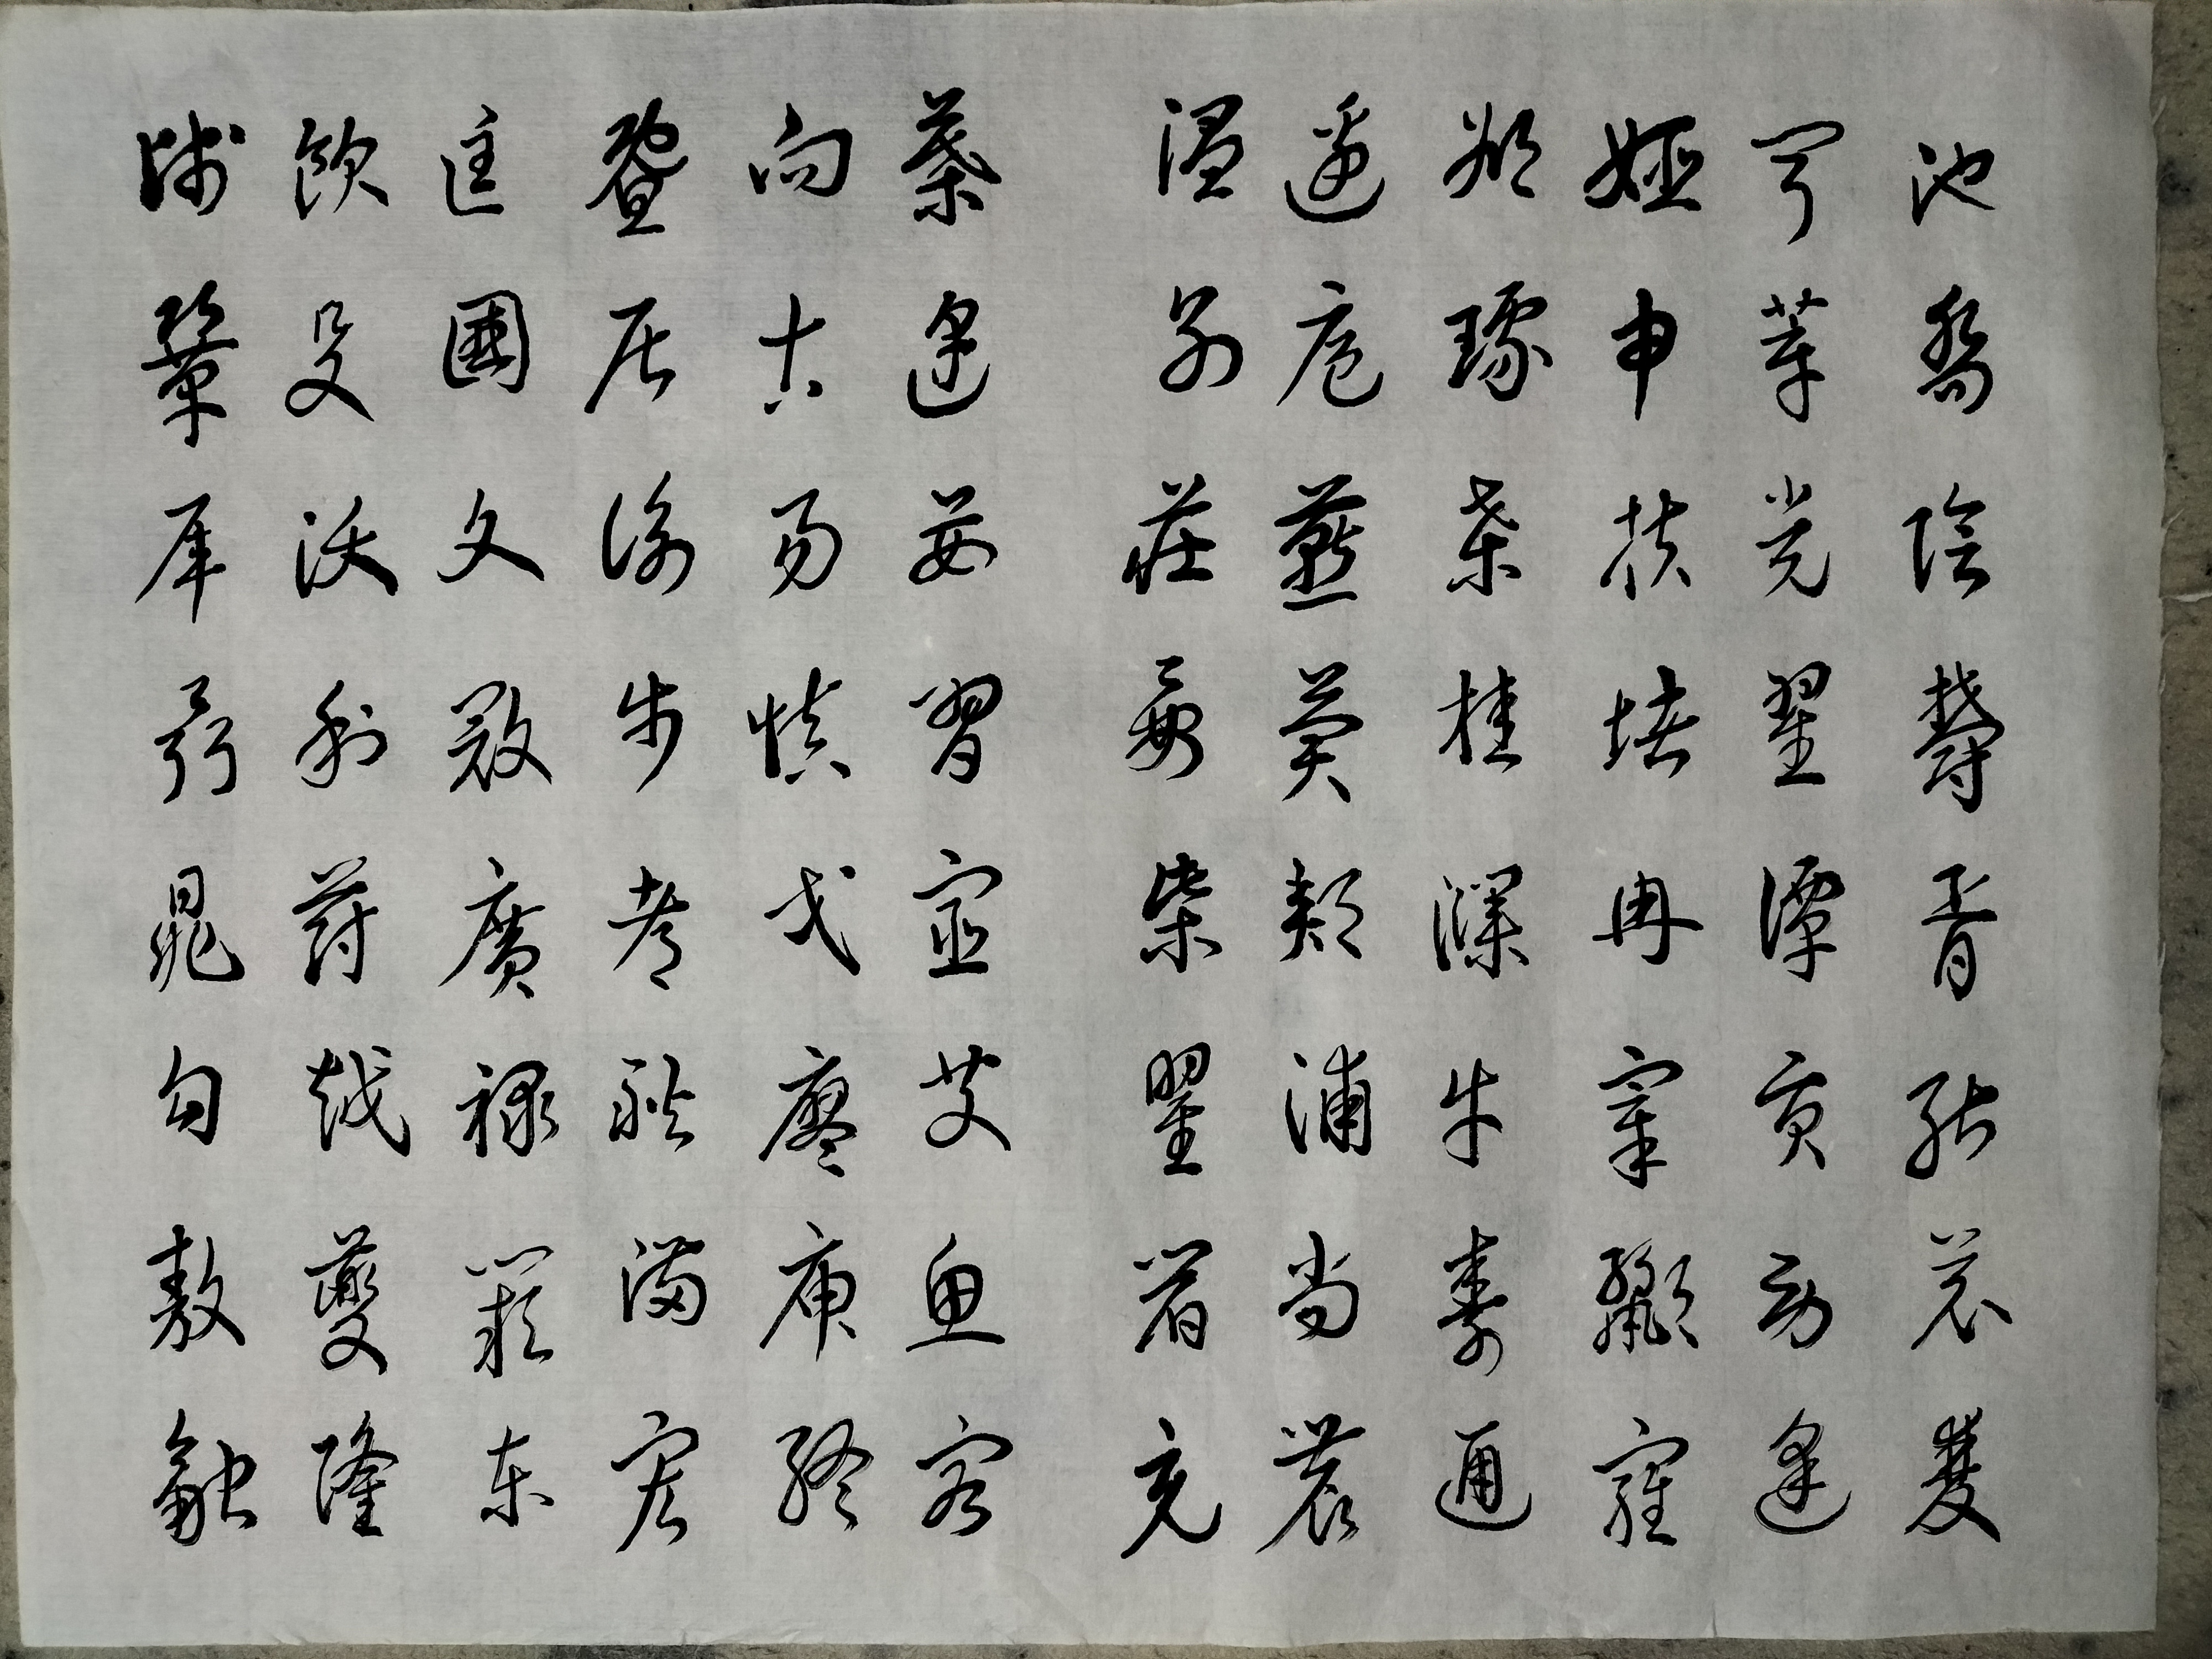 池喬陰鬱胥能蒼雙
聞莘黨翟譚貢勞逄
姬申扶堵冉宰酈雍
郤璩桑桂濮牛壽通
邊扈燕冀郟浦尚農
溫別莊晏柴瞿閻充
慕連茹習宦艾魚容
向古易慎戈廖庾終
暨居衡步都耿滿弘
匡國文寇廣祿闕東
歐殳沃利蔚越夔隆
師鞏厙聶晁勾敖融